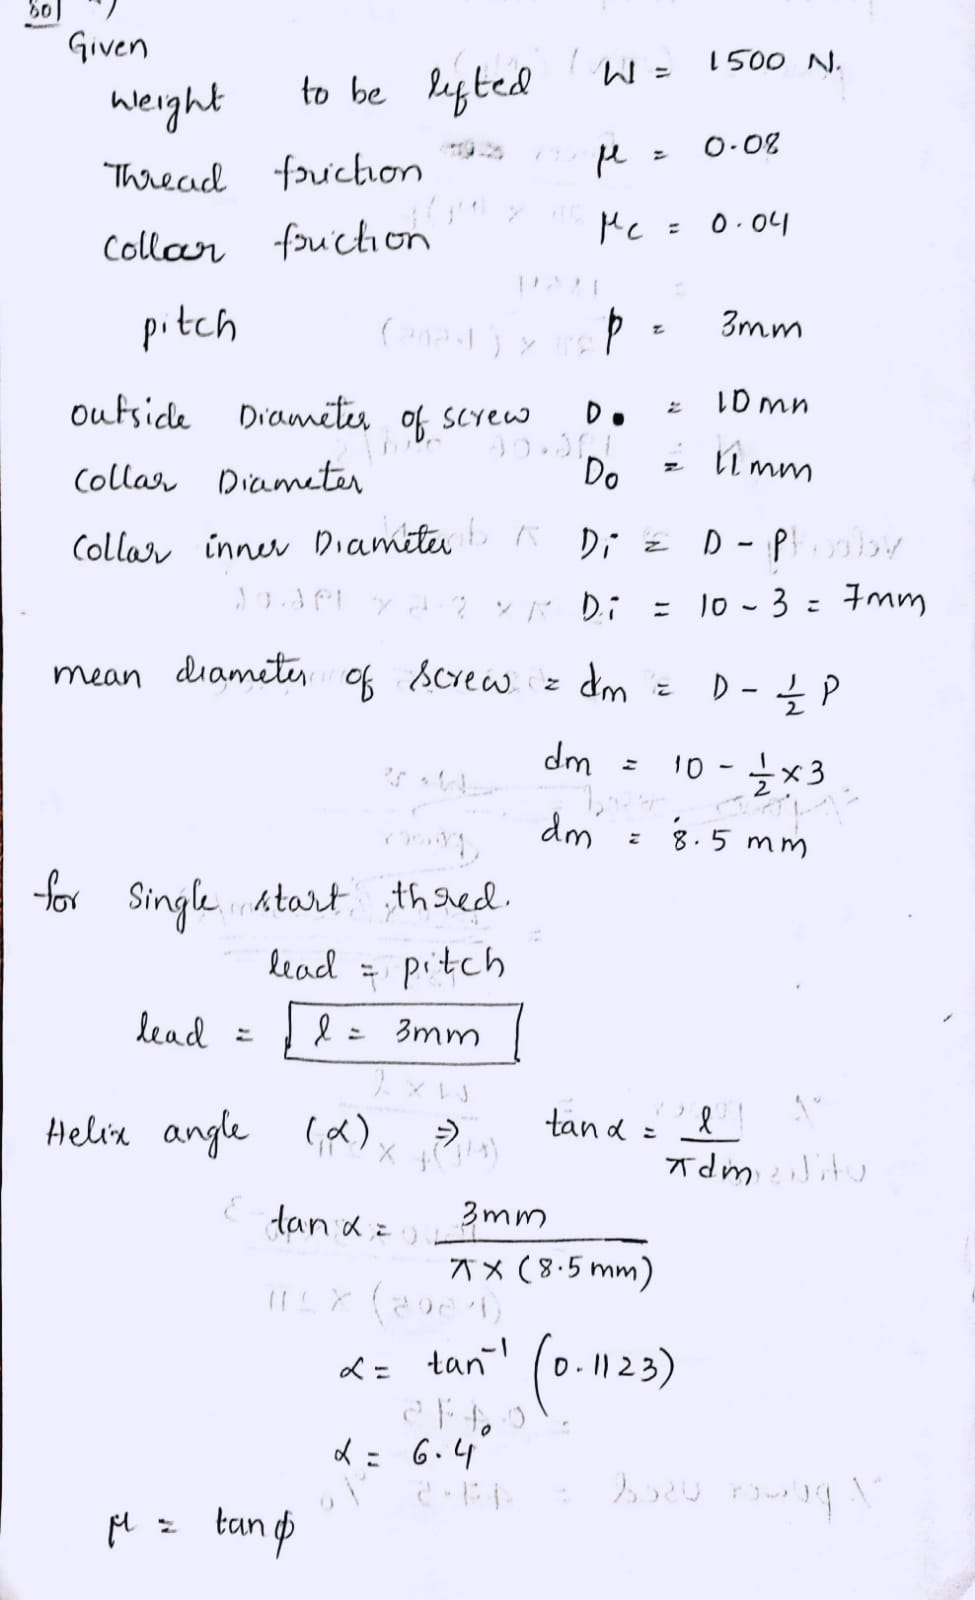 Sol
Given
Weight to be lifted W = 1500 N.
Thread friction μ = 0.08
Collar friction μc = 0.04
pitch p = 3mm
outside Diameter of screw D = 10 mm
Collar Diameter Do = 11 mm
Collar inner Diameter Di = D - P
Di = 10 - 3 = 7mm
mean diameter of screw = dm = D - 1/2 P
dm = 10 - 1/2 × 3
dm = 8.5 mm
for single start thred.
lead = pitch
lead = l = 3mm
Helix angle (α) ⇒ tan α = l / πdm
tan α = 3mm / π × (8.5 mm)
α = tan⁻¹ (0.1123)
α = 6.4°
μ = tan ϕ